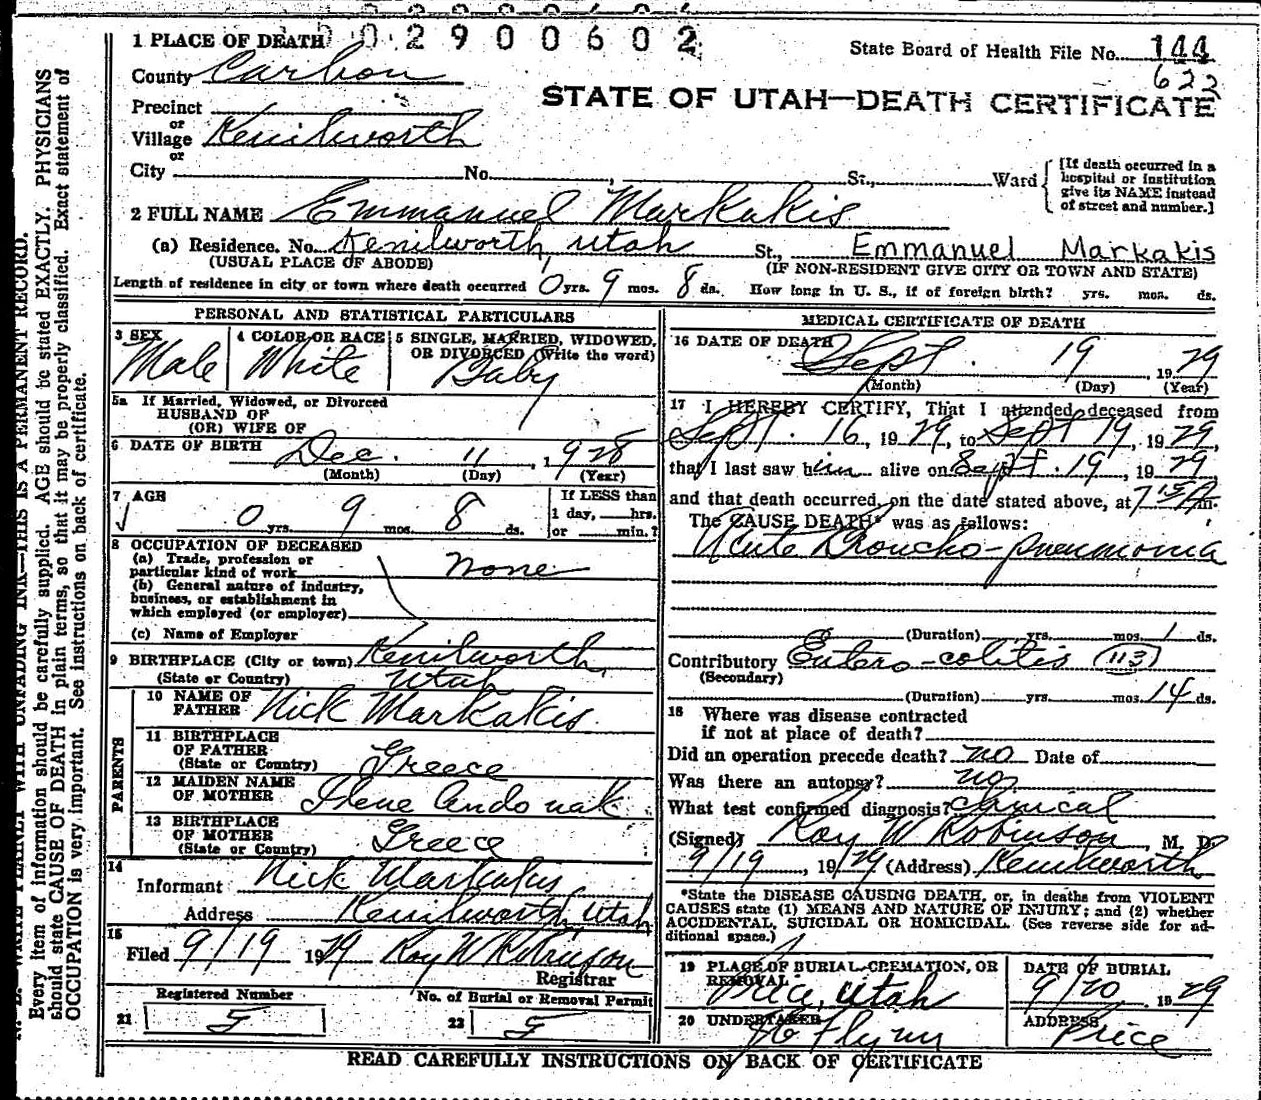 0 0 2 9 0 0 6 0 2
1 PLACE OF DEATH
State Board of Health File No. 144
622
County Carbon
STATE OF UTAH—DEATH CERTIFICATE
Precinct
or
Village Kenilworth
or
City No. , St., Ward
[If death occurred in a
hospital or institution
give its NAME instead
of street and number.]
2 FULL NAME Emmanuel Markakis
(a) Residence. No. Kenilworth, Utah St., Emmanuel Markakis
(USUAL PLACE OF ABODE) (IF NON-RESIDENT GIVE CITY OR TOWN AND STATE)
Length of residence in city or town where death occurred 0 yrs. 9 mos. 8 ds. How long in U. S., if of foreign birth? yrs. mos. ds.
PERSONAL AND STATISTICAL PARTICULARS
3 SEX 4 COLOR OR RACE 5 SINGLE, MARRIED, WIDOWED,
OR DIVORCED (Write the word)
Male White Baby
5a If Married, Widowed, or Divorced
HUSBAND OF
(OR) WIFE OF
6 DATE OF BIRTH Dec. 11, 1928
(Month) (Day) (Year)
7 AGE
0 yrs. 9 mos. 8 ds.
If LESS than
1 day, hrs.
or min.?
8 OCCUPATION OF DECEASED
(a) Trade, profession or
particular kind of work None
(b) General nature of industry,
business, or establishment in
which employed (or employer)
(c) Name of Employer
9 BIRTHPLACE (City or town) Kenilworth,
(State or Country) Utah
PARENTS
10 NAME OF
FATHER Nick Markakis.
11 BIRTHPLACE
OF FATHER
(State or Country) Greece
12 MAIDEN NAME
OF MOTHER Irene Andonak
13 BIRTHPLACE
OF MOTHER
(State or Country) Greece
14
Informant Nick Markakis
Address Kenilworth, Utah
15
Filed 9/19 1929 Roy W Robinson
Registrar
Registered Number No. of Burial or Removal Permit
21 5 22 5
MEDICAL CERTIFICATE OF DEATH
16 DATE OF DEATH
Sept. 19, 1929
(Month) (Day) (Year)
17 I HEREBY CERTIFY, That I attended deceased from
Sept. 16, 1929, to Sept 19, 1929,
that I last saw him alive on Sept. 19, 1929
and that death occurred, on the date stated above, at 7 15 A m.
The CAUSE DEATH* was as follows:
Acute Broncho-pneumonia
(Duration) yrs. mos. 1 ds.
Contributory Entero-colitis (113)
(Secondary)
(Duration) yrs. mos. 14 ds.
18 Where was disease contracted
if not at place of death?
Did an operation precede death? no Date of
Was there an autopsy? no.
What test confirmed diagnosis? clinical
(Signed) Roy W Robinson, M. D.
9/19, 1929 (Address) Kenilworth
*State the DISEASE CAUSING DEATH, or, in deaths from VIOLENT
CAUSES state (1) MEANS AND NATURE OF INJURY; and (2) whether
ACCIDENTAL, SUICIDAL OR HOMICIDAL. (See reverse side for ad-
ditional space.)
19 PLACE OF BURIAL, CREMATION, OR
REMOVAL
Price, Utah
DATE OF BURIAL
9/20, 1929
20 UNDERTAKER
Flynn
ADDRESS
Price
READ CAREFULLY INSTRUCTIONS ON BACK OF CERTIFICATE
WRITE PLAINLY WITH UNFADING INK—THIS IS A PERMANENT RECORD.
Every item of information should be carefully supplied. AGE should be stated EXACTLY. PHYSICIANS
should state CAUSE OF DEATH in plain terms, so that it may be properly classified. Exact statement of
OCCUPATION is very important. See instructions on back of certificate.